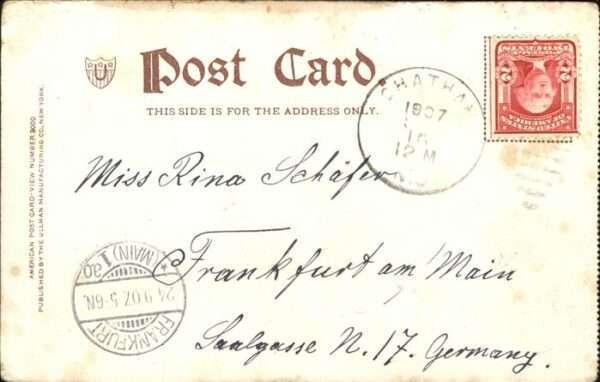 U
Post Card.
THIS SIDE IS FOR THE ADDRESS ONLY.
CHATHAM
1907
16
12 M
TWO CENTS
2 2
UNITED STATES
OF AMERICA
AMERICAN POST CARD-VIEW NUMBER 3000
PUBLISHED BY THE ULLMAN MANUFACTURING CO., NEW YORK.
Miss Rina Schäfer
Frankfurt am Main
Saalgasse N. 17. Germany.
FRANKFURT
24.9.07. 5-6N.
* (MAIN) 1 ag